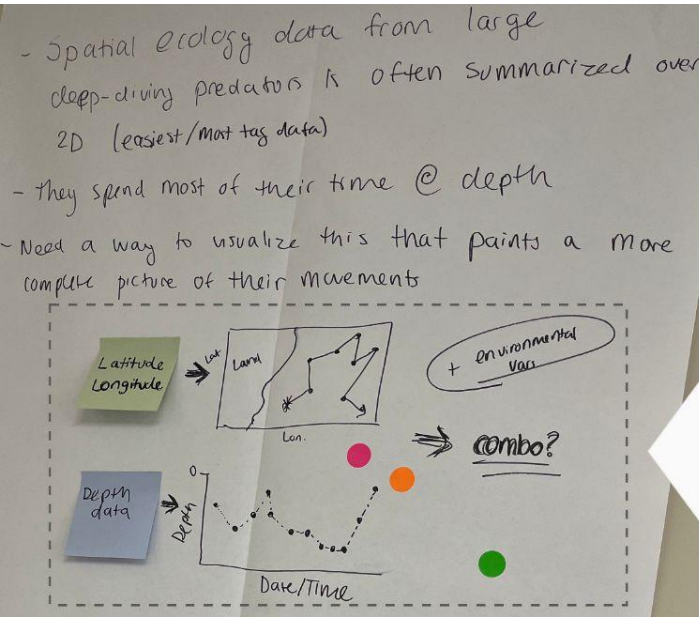 - Spatial ecology data from large
deep-diving predators is often summarized over
2D (easiest/most tag data)
- They spend most of their time @ depth
- Need a way to visualize this that paints a more
complete picture of their movements
Latitude
Longitude
Lat
Land
Lon.
+ environmental
vars
combo?
Depth
data
0
Depth
Date/Time